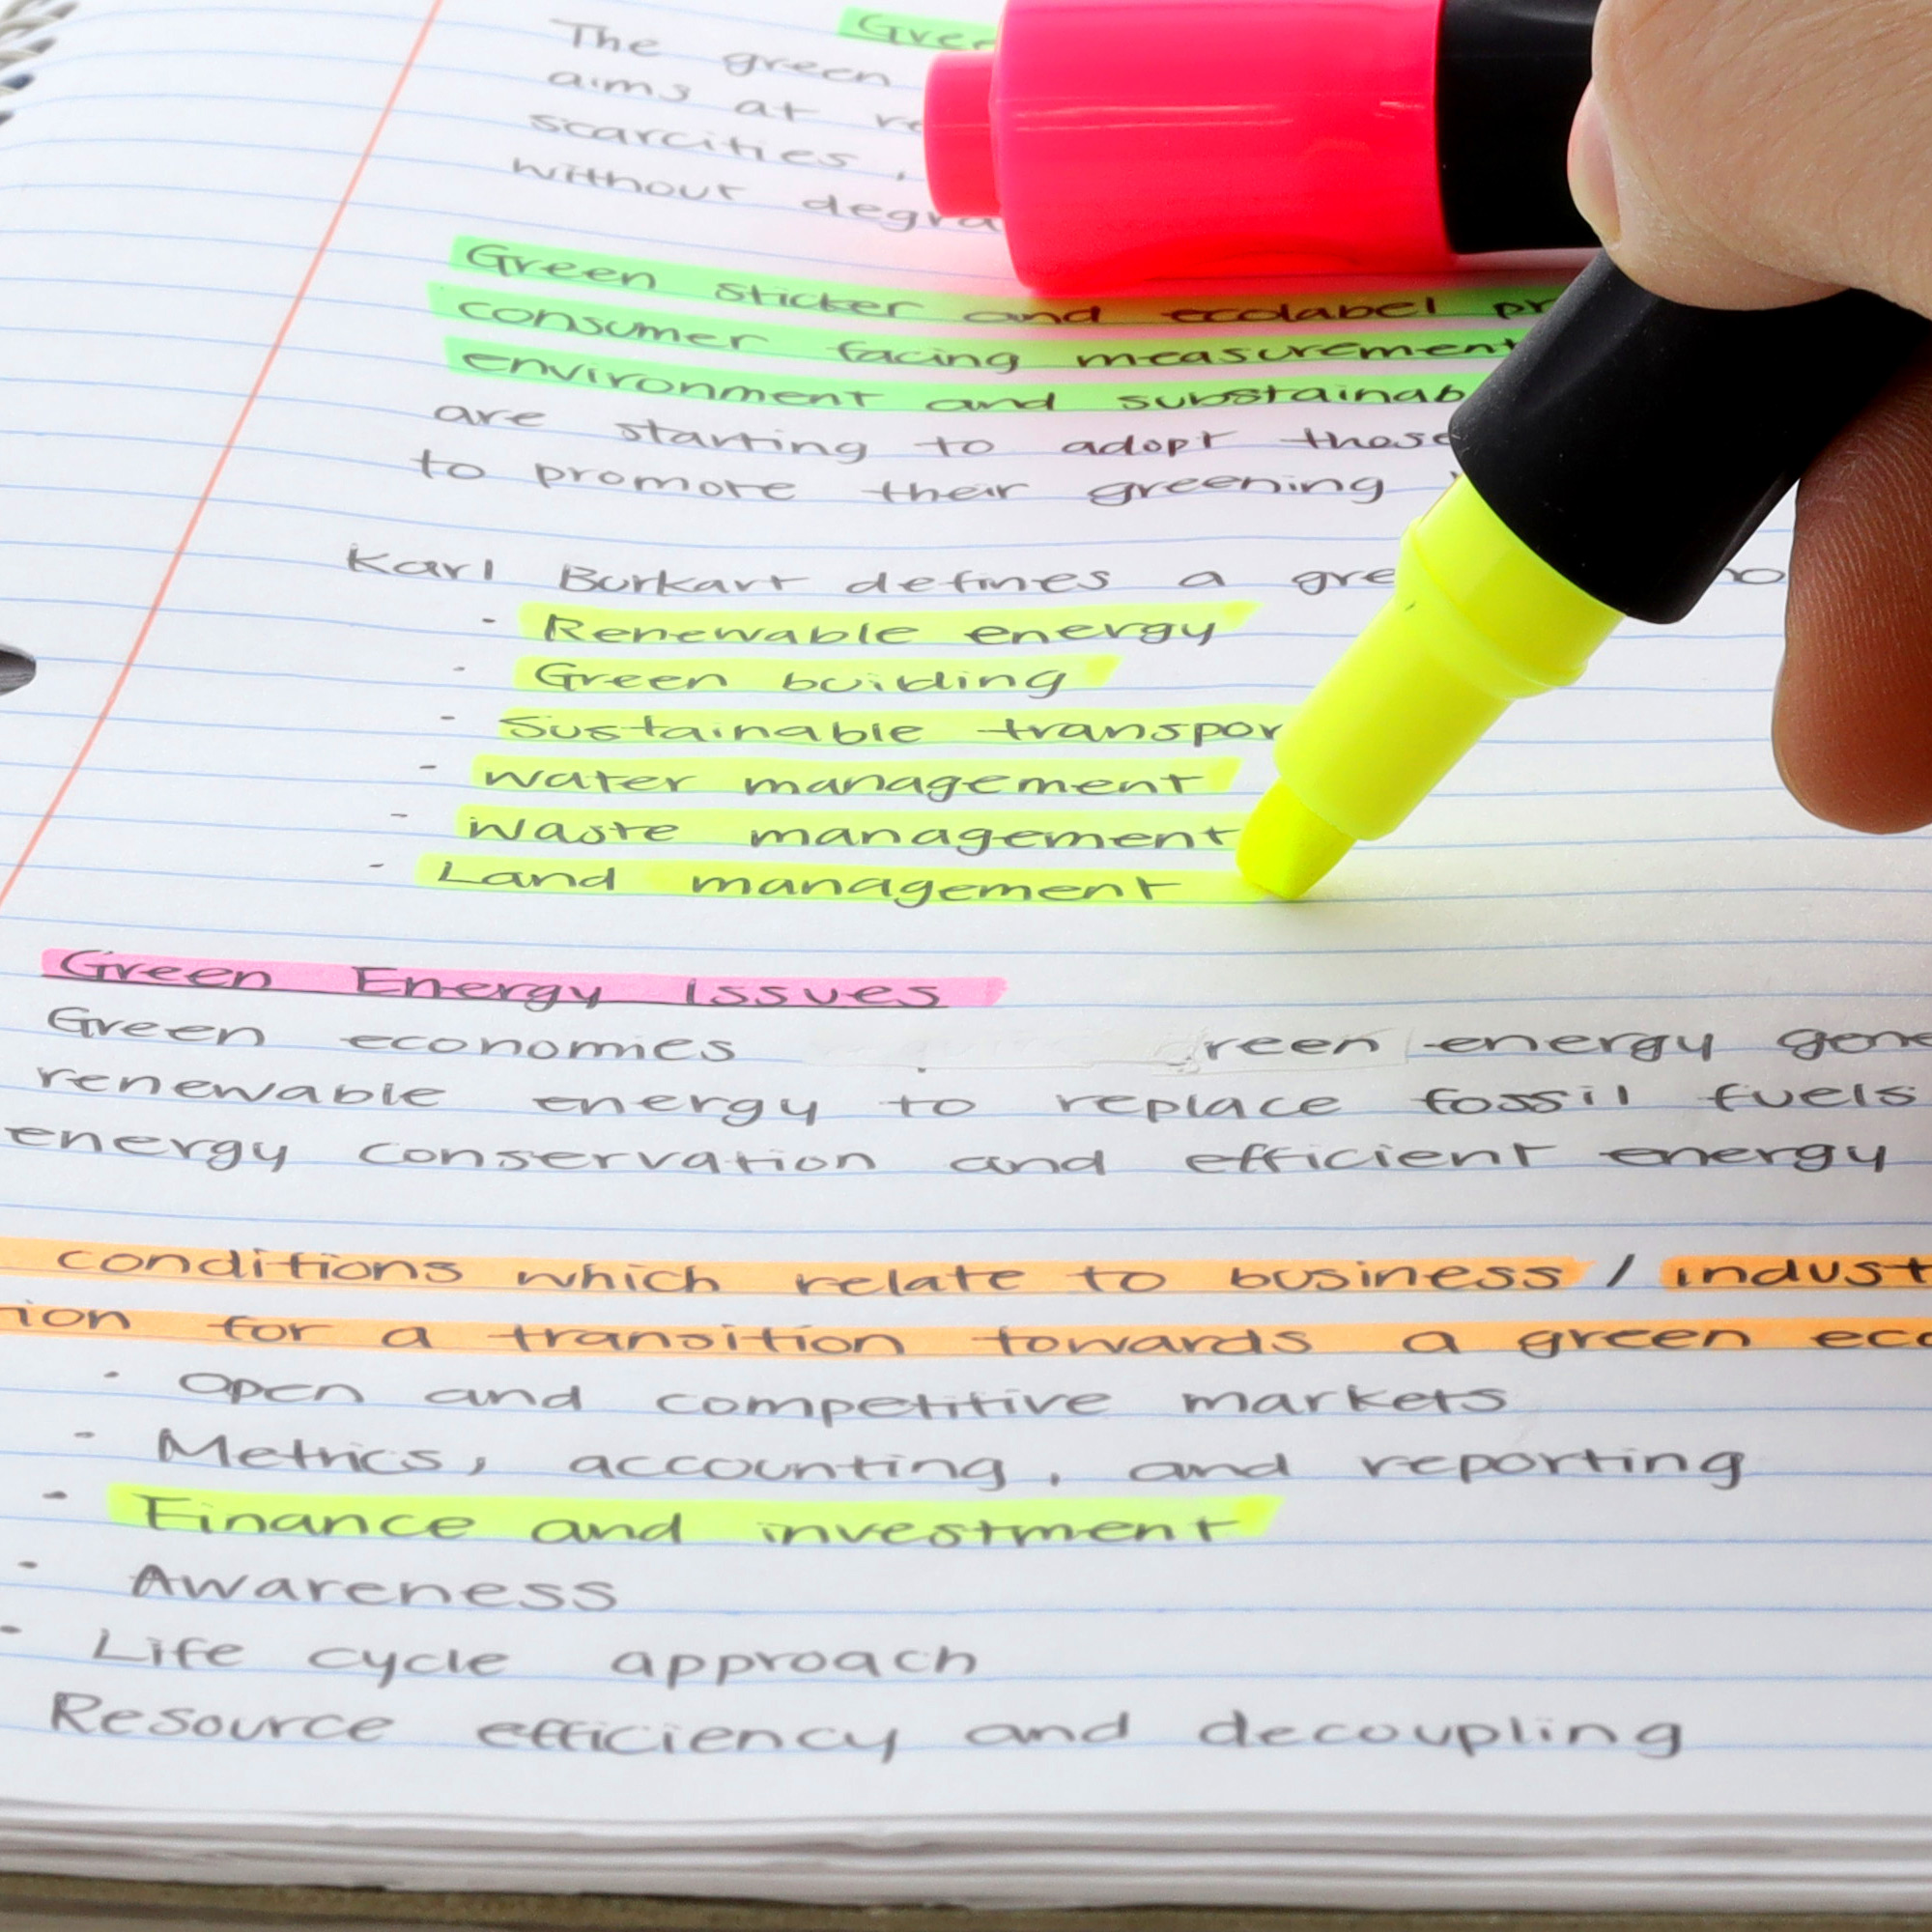 Gree
The green
aims at re
scarcities,
without degra
Green sticker and ecolabel pr
consumer facing measurement
environment and sustainab
are starting to adopt these
to promote their greening
Karl Burkart defines a gre no
- Renewable energy
- Green building
- Sustainable transpor
- Water management
- Waste management
- Land management
Green Energy Issues
Green economies reen energy gene
renewable energy to replace fossil fuels
energy conservation and efficient energy
conditions which relate to business / indust
ion for a transition towards a green eco
- Open and competitive markets
- Metrics, accounting, and reporting
- Finance and investment
- Awareness
- Life cycle approach
Resource efficiency and decoupling